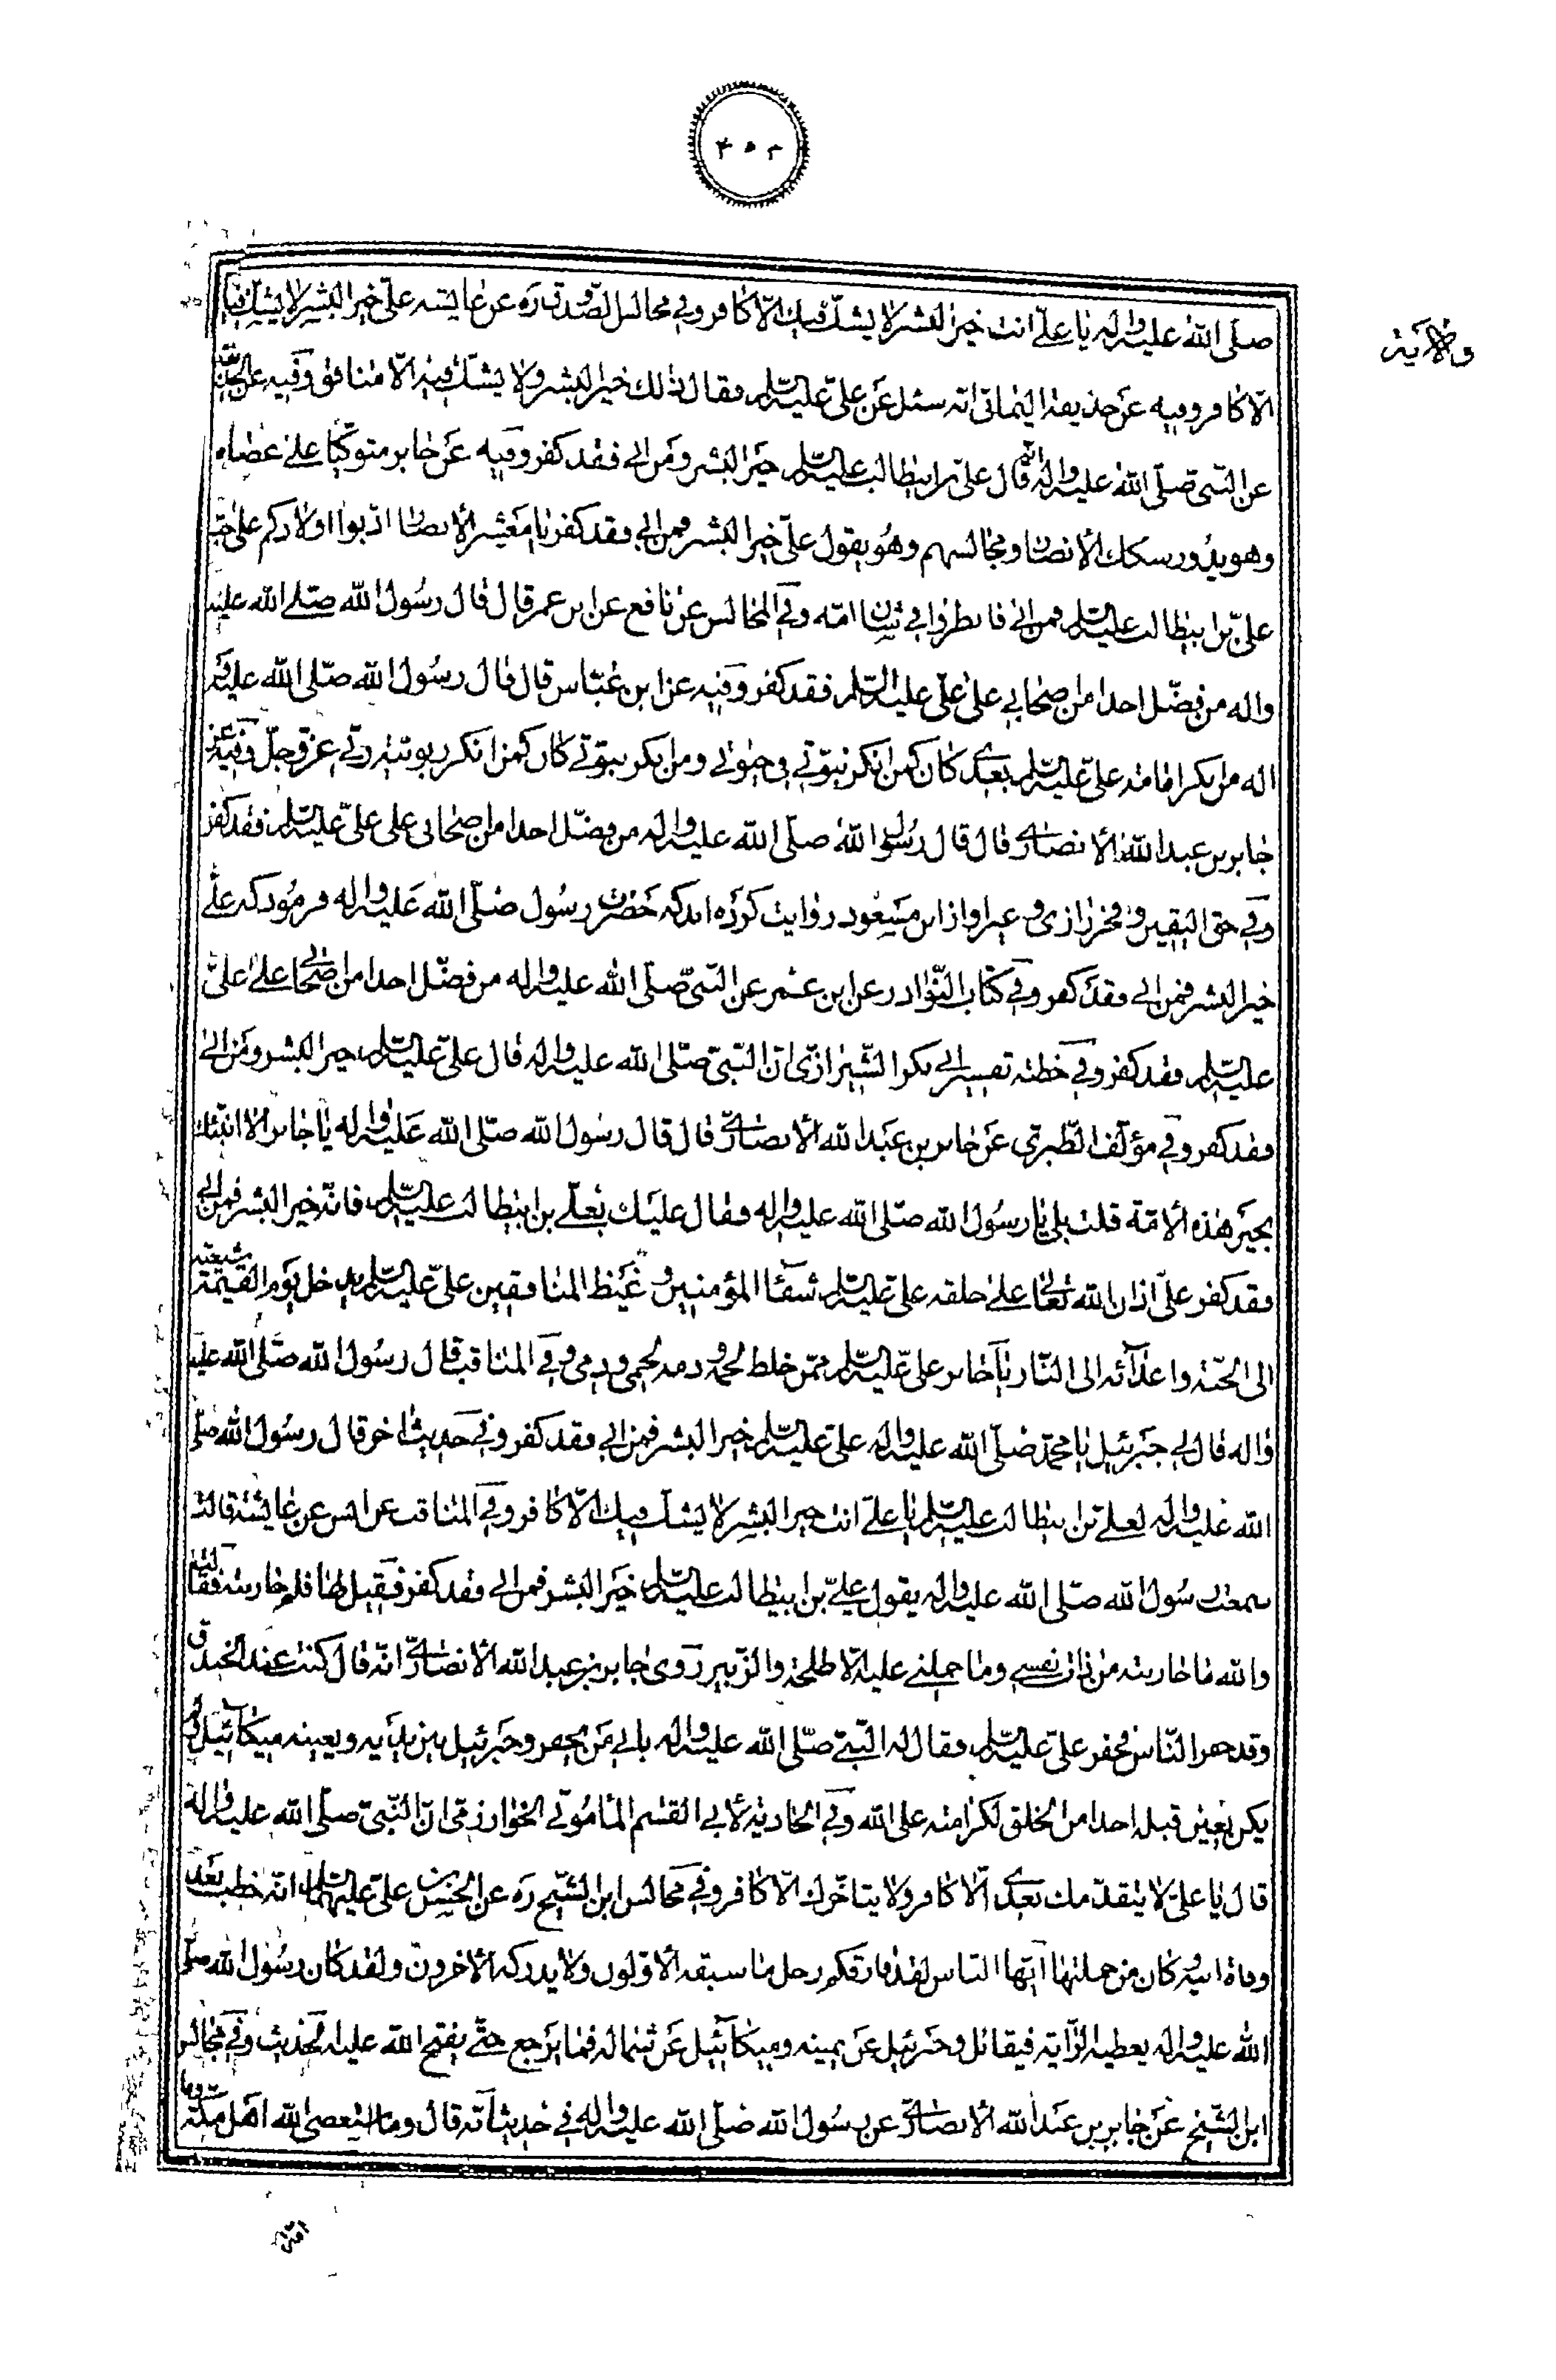 ٤٠٢
ولاية
صلى الله عليه واله يا على انت خير البشر لا يشك فيك الا كافر وفي مجالس الصدوق ره عن عايشه على خير البشر لا يشك فيه
الا كافر وفيه عن حذيفة اليماني انه سئل عن على عليه السلم فقال ذلك خير البشر ولا يشك فيه الا منافق وفيه عن
عن النبى صلى الله عليه واله انه قال على بن ابيطالب عليه السلم خير البشر ومن ابى فقد كفر وفيه عن جابر متوكئا على عصاه
وهو يدور سكك الانصار ومجالسهم وهو يقول على خير البشر فمن ابى فقد كفر يا معشر الانصار ادبوا اولادكم على حب
على بن ابيطالب عليه السلم فمن ابى فانظروا في شان امه وفي المجالس عن نافع عن ابن عمر قال قال رسول الله صلى الله عليه
واله من فضل احدا من صحابي على على عليه السلم فقد كفر وفيه عن ابن عباس قال قال رسول الله صلى الله عليه و
اله من نكر امامة على عليه السلم بعدى كان كمن انكر نبوتي في حيوتي ومن نكر نبوتي كان كمن انكر ربوبية ربي عز وجل وفيه عن
جابر بن عبد الله الانصارى قال قال رسول الله صلى الله عليه واله من فضل احدا من صحابي على على عليه السلم فقد كفر
وفي حق اليقين و فخر رازى و غير او از ابن مسعود روايت كرده اند كه حضرت رسول صلى الله عليه واله فرمود كه على
خير البشر فمن ابى فقد كفر وفي كتاب النوادر عن ابن عمر عن النبى صلى الله عليه واله من فضل احدا من اصحابي على على
عليه السلم فقد كفر وفي خطبة تفسير ابي بكر الشيرازى ان النبى صلى الله عليه واله قال على عليه السلم خير البشر ومن ابى
فقد كفر وفي مؤلف الطبرى عن جابر بن عبد الله الانصارى قال قال رسول الله صلى الله عليه واله يا جابر الا انبئك
بخير هذه الامة قلت بلى يا رسول الله صلى الله عليه واله فقال عليك بعلى بن ابيطالب عليه السلم فانه خير البشر فمن ابى
فقد كفر على اذان الله تعالى على خلقه على عليه السلم شفاء المؤمنين و غيظ المنافقين على عليه السلم يدخل يوم القيمة شيعته
الى الجنة واعدائه الى النار يا جابر على عليه السلم ممن خلط لحمه و دمه لحمي ودمي و في المناقب قال رسول الله صلى الله عليه
واله قال لي جبرئيل يا محمد صلى الله عليه واله على عليه السلم خير البشر فمن ابى فقد كفر وفي حديث اخر قال رسول الله صلى
الله عليه واله لعلى بن ابيطالب عليه السلم يا على انت خير البشر لا يشك فيك الا كافر وفي المناقب عن انس عن عايشة قالت
سمعت رسول الله صلى الله عليه واله يقول على بن ابيطالب عليه السلم خير البشر فمن ابى فقد كفر فقيل لها فلم حاربته فقالت
والله ما حاربته من ذات نفسى وما حملني عليه الا طلحة والزبير روى جابر بن عبد الله الانصارى انه قال كنت عند الخندق
وقد حفر الناس وحفر على عليه السلم فقال له النبى صلى الله عليه واله بابي من يحفر وجبرئيل بين يديه ويعينه ميكائيل ولم
يكن يعين قبله احدا من الخلق لكرامته على الله وفي لابي القسم المامونى الخوارزمي ان النبى صلى الله عليه واله
قال يا على لا يتقدمك بعدى الا كافر ولا يتاخرك الا كافر وفي مجالس ابن الشيخ ره عن الحسن بن على عليهما السلم انه خطب بعد
وفاة ابيه كان من جملتها ايها الناس لقد فارقكم رجل ما سبقه الاولون ولا يدركه الاخرون ولقد كان رسول الله صلى
الله عليه واله يعطيه الراية فيقاتل وجبرئيل عن يمينه وميكائيل عن شماله فما يرجع حتى يفتح الله عليه الحديث وفي مجالس
ابن الشيخ عن جابر بن عبد الله الانصارى عن رسول الله صلى الله عليه واله في حديث انه قال وما استعصى الله اهل مملكة